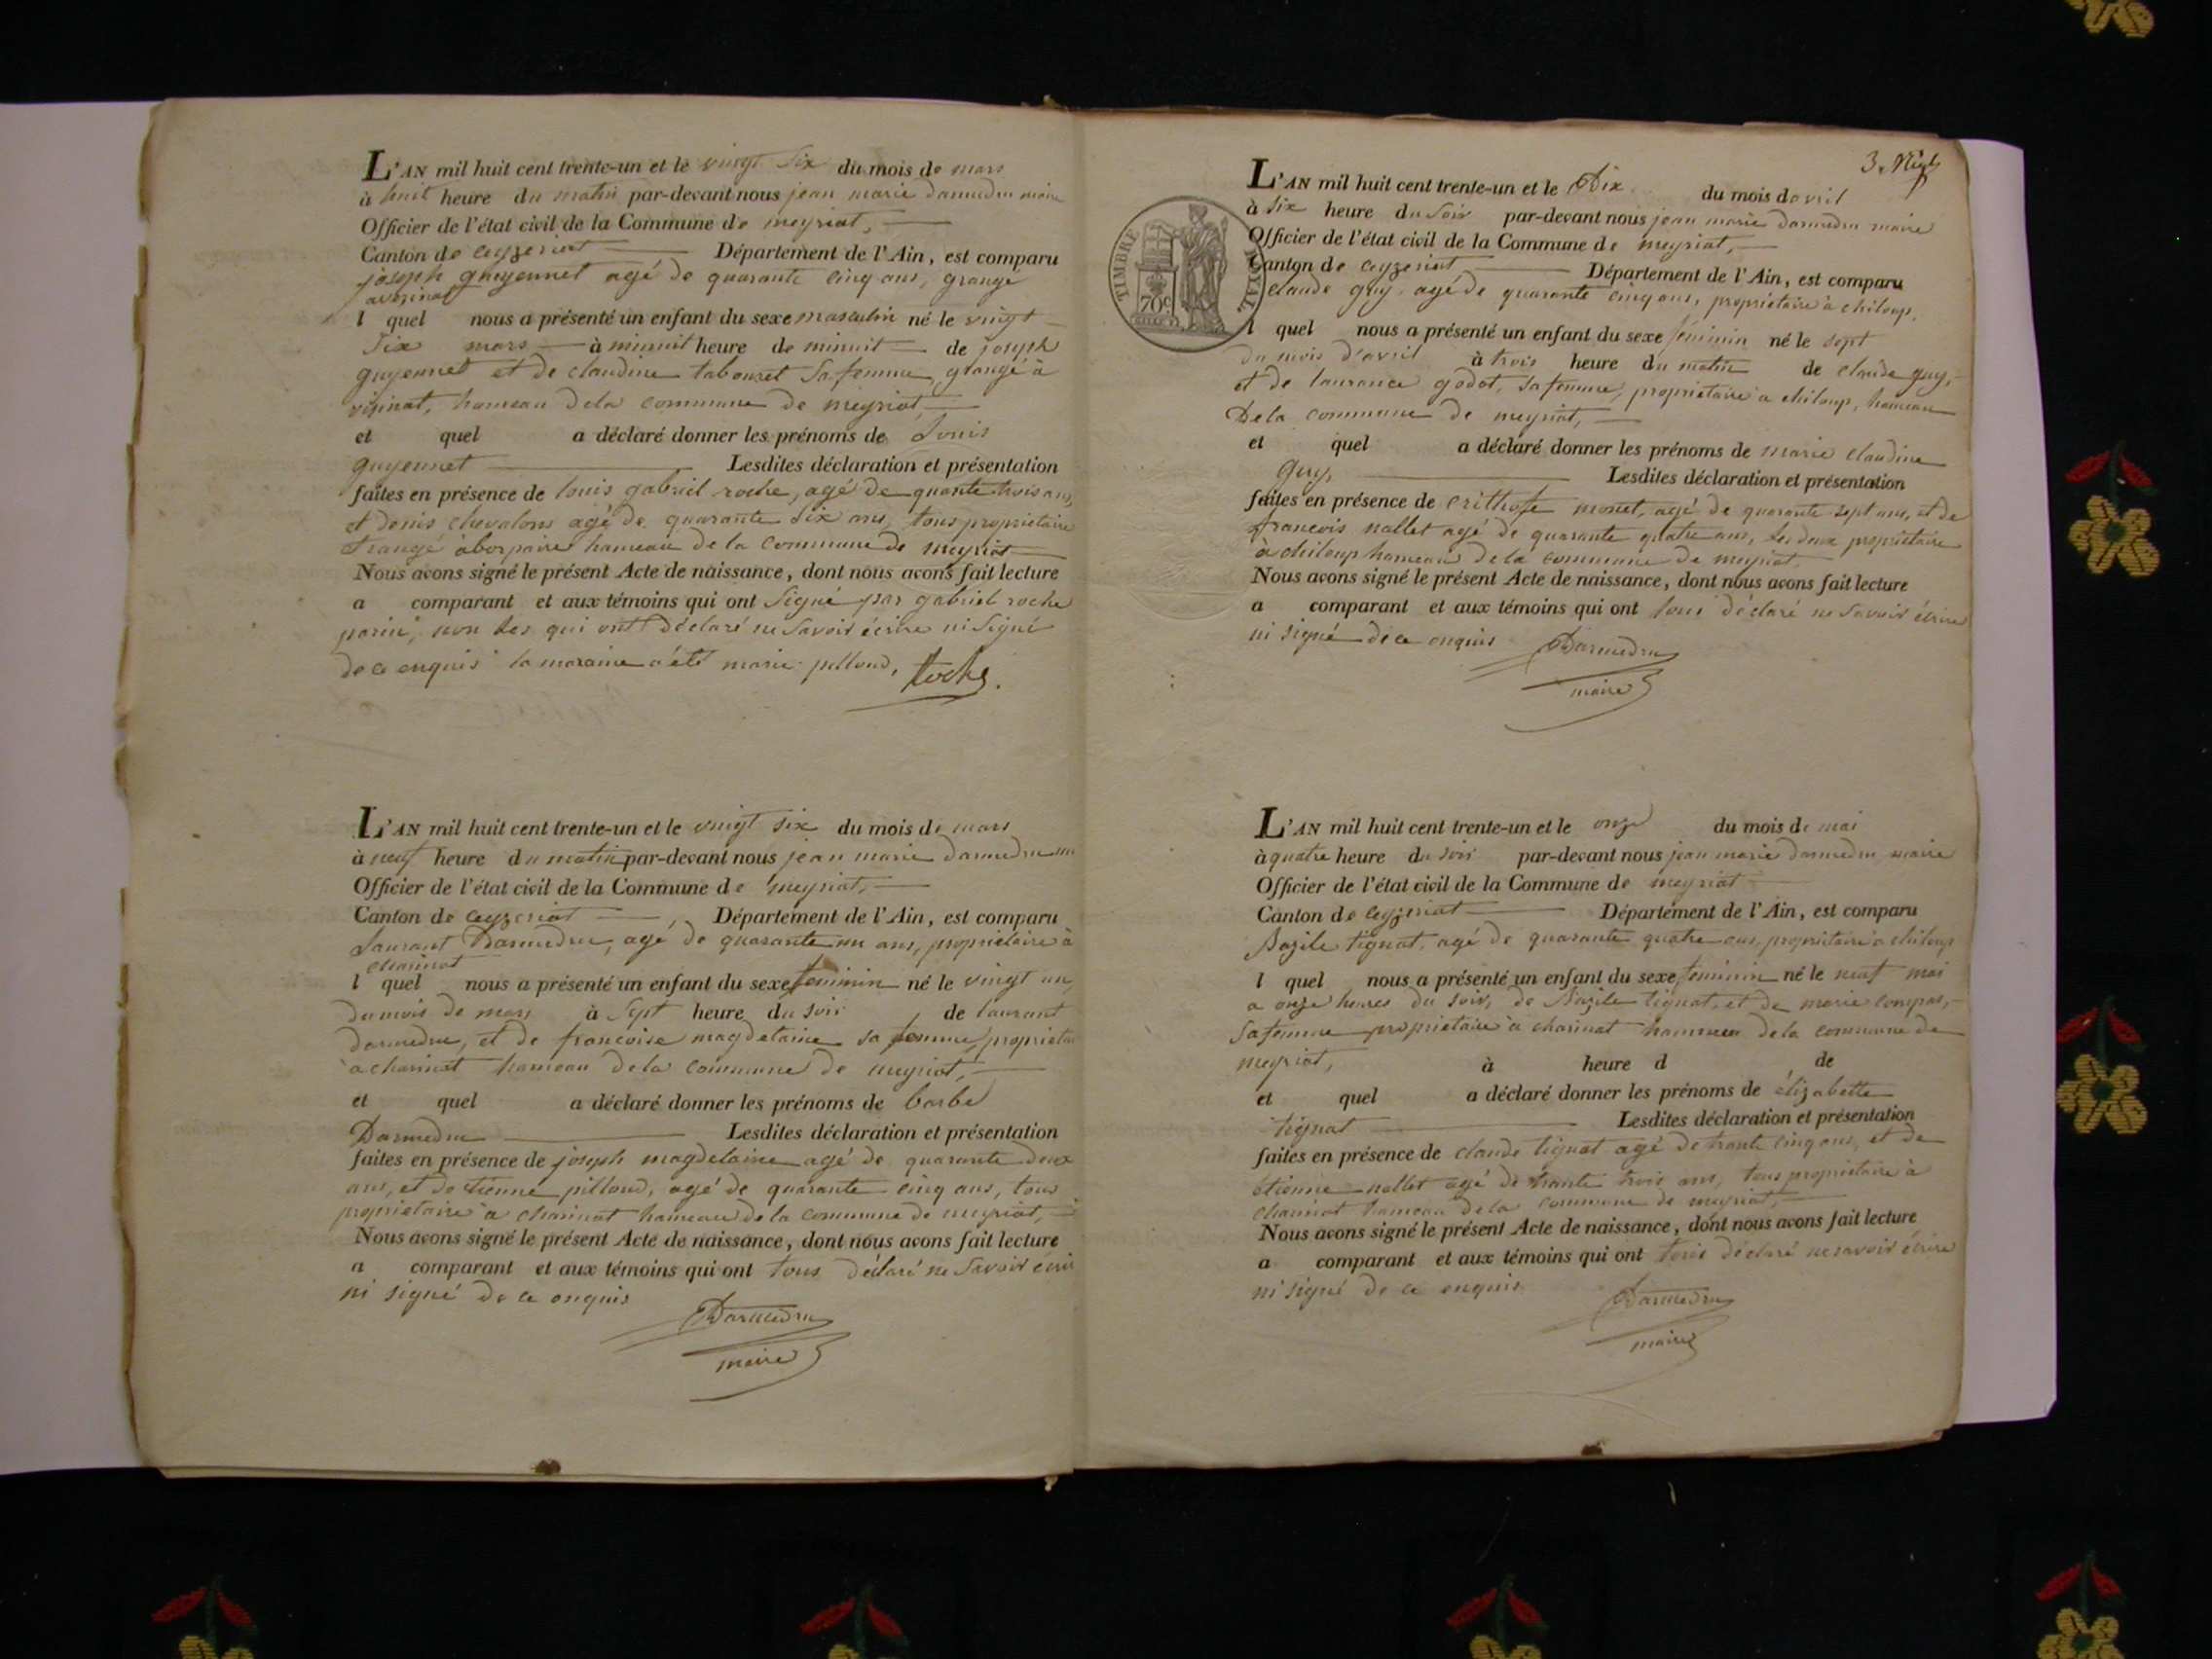 L'AN mil huit cent trente-un et le vingt six du mois de mars
à huit heure du matin par-devant nous jean marie darmedru maire
Officier de l'état civil de la Commune de meyriat,
Canton de ceyzeriat Département de l'Ain, est comparu
joseph guyennet agé de quarante cinq ans, grangé
l quel nous a présenté un enfant du sexe masculin né le vingt
six mars à minuit heure de minuit de joseph
guyennet et de claudine tabouret sa femme, grangé à
hameau dela commune de meyriat,
et quel a déclaré donner les prénoms de Louis
guyennet Lesdites déclaration et présentation
faites en présence de louis gabriel roche, agé de quarante trois ans,
et denis chevalons agé de quarante six ans, tous proprietaire
hameau de la commune de meyriat
Nous avons signé le présent Acte de naissance, dont nous avons fait lecture
a comparant et aux témoins qui ont signé par gabriel roche
non les qui ont déclaré ne savoir écrire ni signé
de ce enquis la maraine a été marie pilloud, Roche.
L'AN mil huit cent trente-un et le vingt six du mois de mars
à neuf heure du matin par-devant nous jean marie darmedru
Officier de l'état civil de la Commune de meyriat,
Canton de ceyzeriat, Département de l'Ain, est comparu
Laurant Darmedru, agé de quarante un ans, proprietaire à
charinat
l quel nous a présenté un enfant du sexe feminin né le vingt un
du mois de mars à sept heure du soir de laurant
darmedru, et de francoise magdelaine sa femme, proprietai
à charinat hameau dela commune de meyriat,
et quel a déclaré donner les prénoms de barbe
Darmedru Lesdites déclaration et présentation
faites en présence de joseph magdelaine agé de quarante deux
ans, et detienne pilloud, agé de quarante cinq ans, tous
proprietaire a charinat hameau de la commune de meyriat,
Nous avons signé le présent Acte de naissance, dont nous avons fait lecture
a comparant et aux témoins qui ont tous déclaré ne savoir écrir
ni signé de ce enquis
Darmedru
maire
3.
TIMBRE ROYAL
70c
L'AN mil huit cent trente-un et le Dix du mois davril
à six heure du soir par-devant nous jean marie darmedru maire
Officier de l'état civil de la Commune de meyriat,
Canton de ceyzeriat, Département de l'Ain, est comparu
claude guy, agé de quarante cinq ans, proprietaire à chiloup,
l quel nous a présenté un enfant du sexe féminin né le sept
du mois d'avril à trois heure du matin de claude guy,
et de laurance godet, sa femme, proprietaire a chiloup, hameau
dela commune de meyriat,
et quel a déclaré donner les prénoms de marie claudine
guy, Lesdites déclaration et présentation
faites en présence de crithofe monet, agé de quarante sept ans, et de
francois nallet agé de quarante quatre ans, les deux proprietaire
à chiloup hameau dela commune de meyriat
Nous avons signé le présent Acte de naissance, dont nous avons fait lecture
a comparant et aux témoins qui ont tous déclaré ne savoir écrire
ni signé de ce enquis Darmedru
maire
L'AN mil huit cent trente-un et le onze du mois de mai
à quatre heure du soir par-devant nous jean marie darmedru maire
Officier de l'état civil de la Commune de meyriat
Canton de ceyzeriat Département de l'Ain, est comparu
Bazile tignat, agé de quarante quatre ans, proprietaire a chiloup
l quel nous a présenté un enfant du sexe féminin né le neuf mai
a onze heures du soir, de Bazile tignat, et de marie compas,
sa femme proprietaire a charinat hammea dela commune de
meyriat, à heure d de
et quel a déclaré donner les prénoms de élizabette
tignat Lesdites déclaration et présentation
faites en présence de claude tignat agé de trante cinq ans, et de
étienne nallet agé de trante trois ans, tous proprietaire à
charinat hameau dela commune de meyriat,
Nous avons signé le présent Acte de naissance, dont nous avons fait lecture
a comparant et aux témoins qui ont tous déclaré ne savoir écrire
ni signé de ce enquis
Darmedru
maire